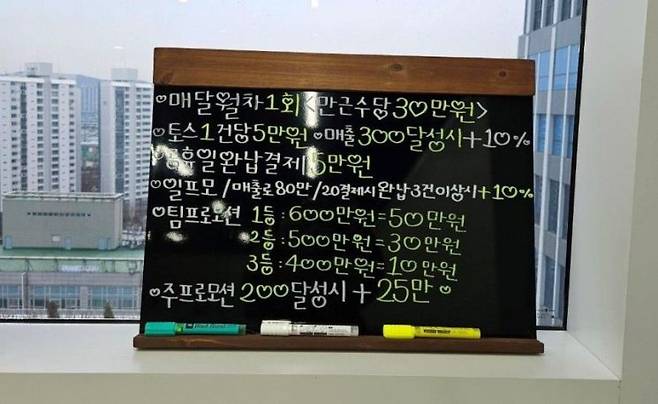 매달월차1회<만근수당30만원>
토스1건당5만원 매출300달성시+10%
공휴일완납결제5만원
일프모/매출로80만/20결제시완납3건이상시+10%
팀프로모션 1등:600만원=50만원
2등:500만원=30만원
3등:400만원=10만원
주프로모션200달성시+25만